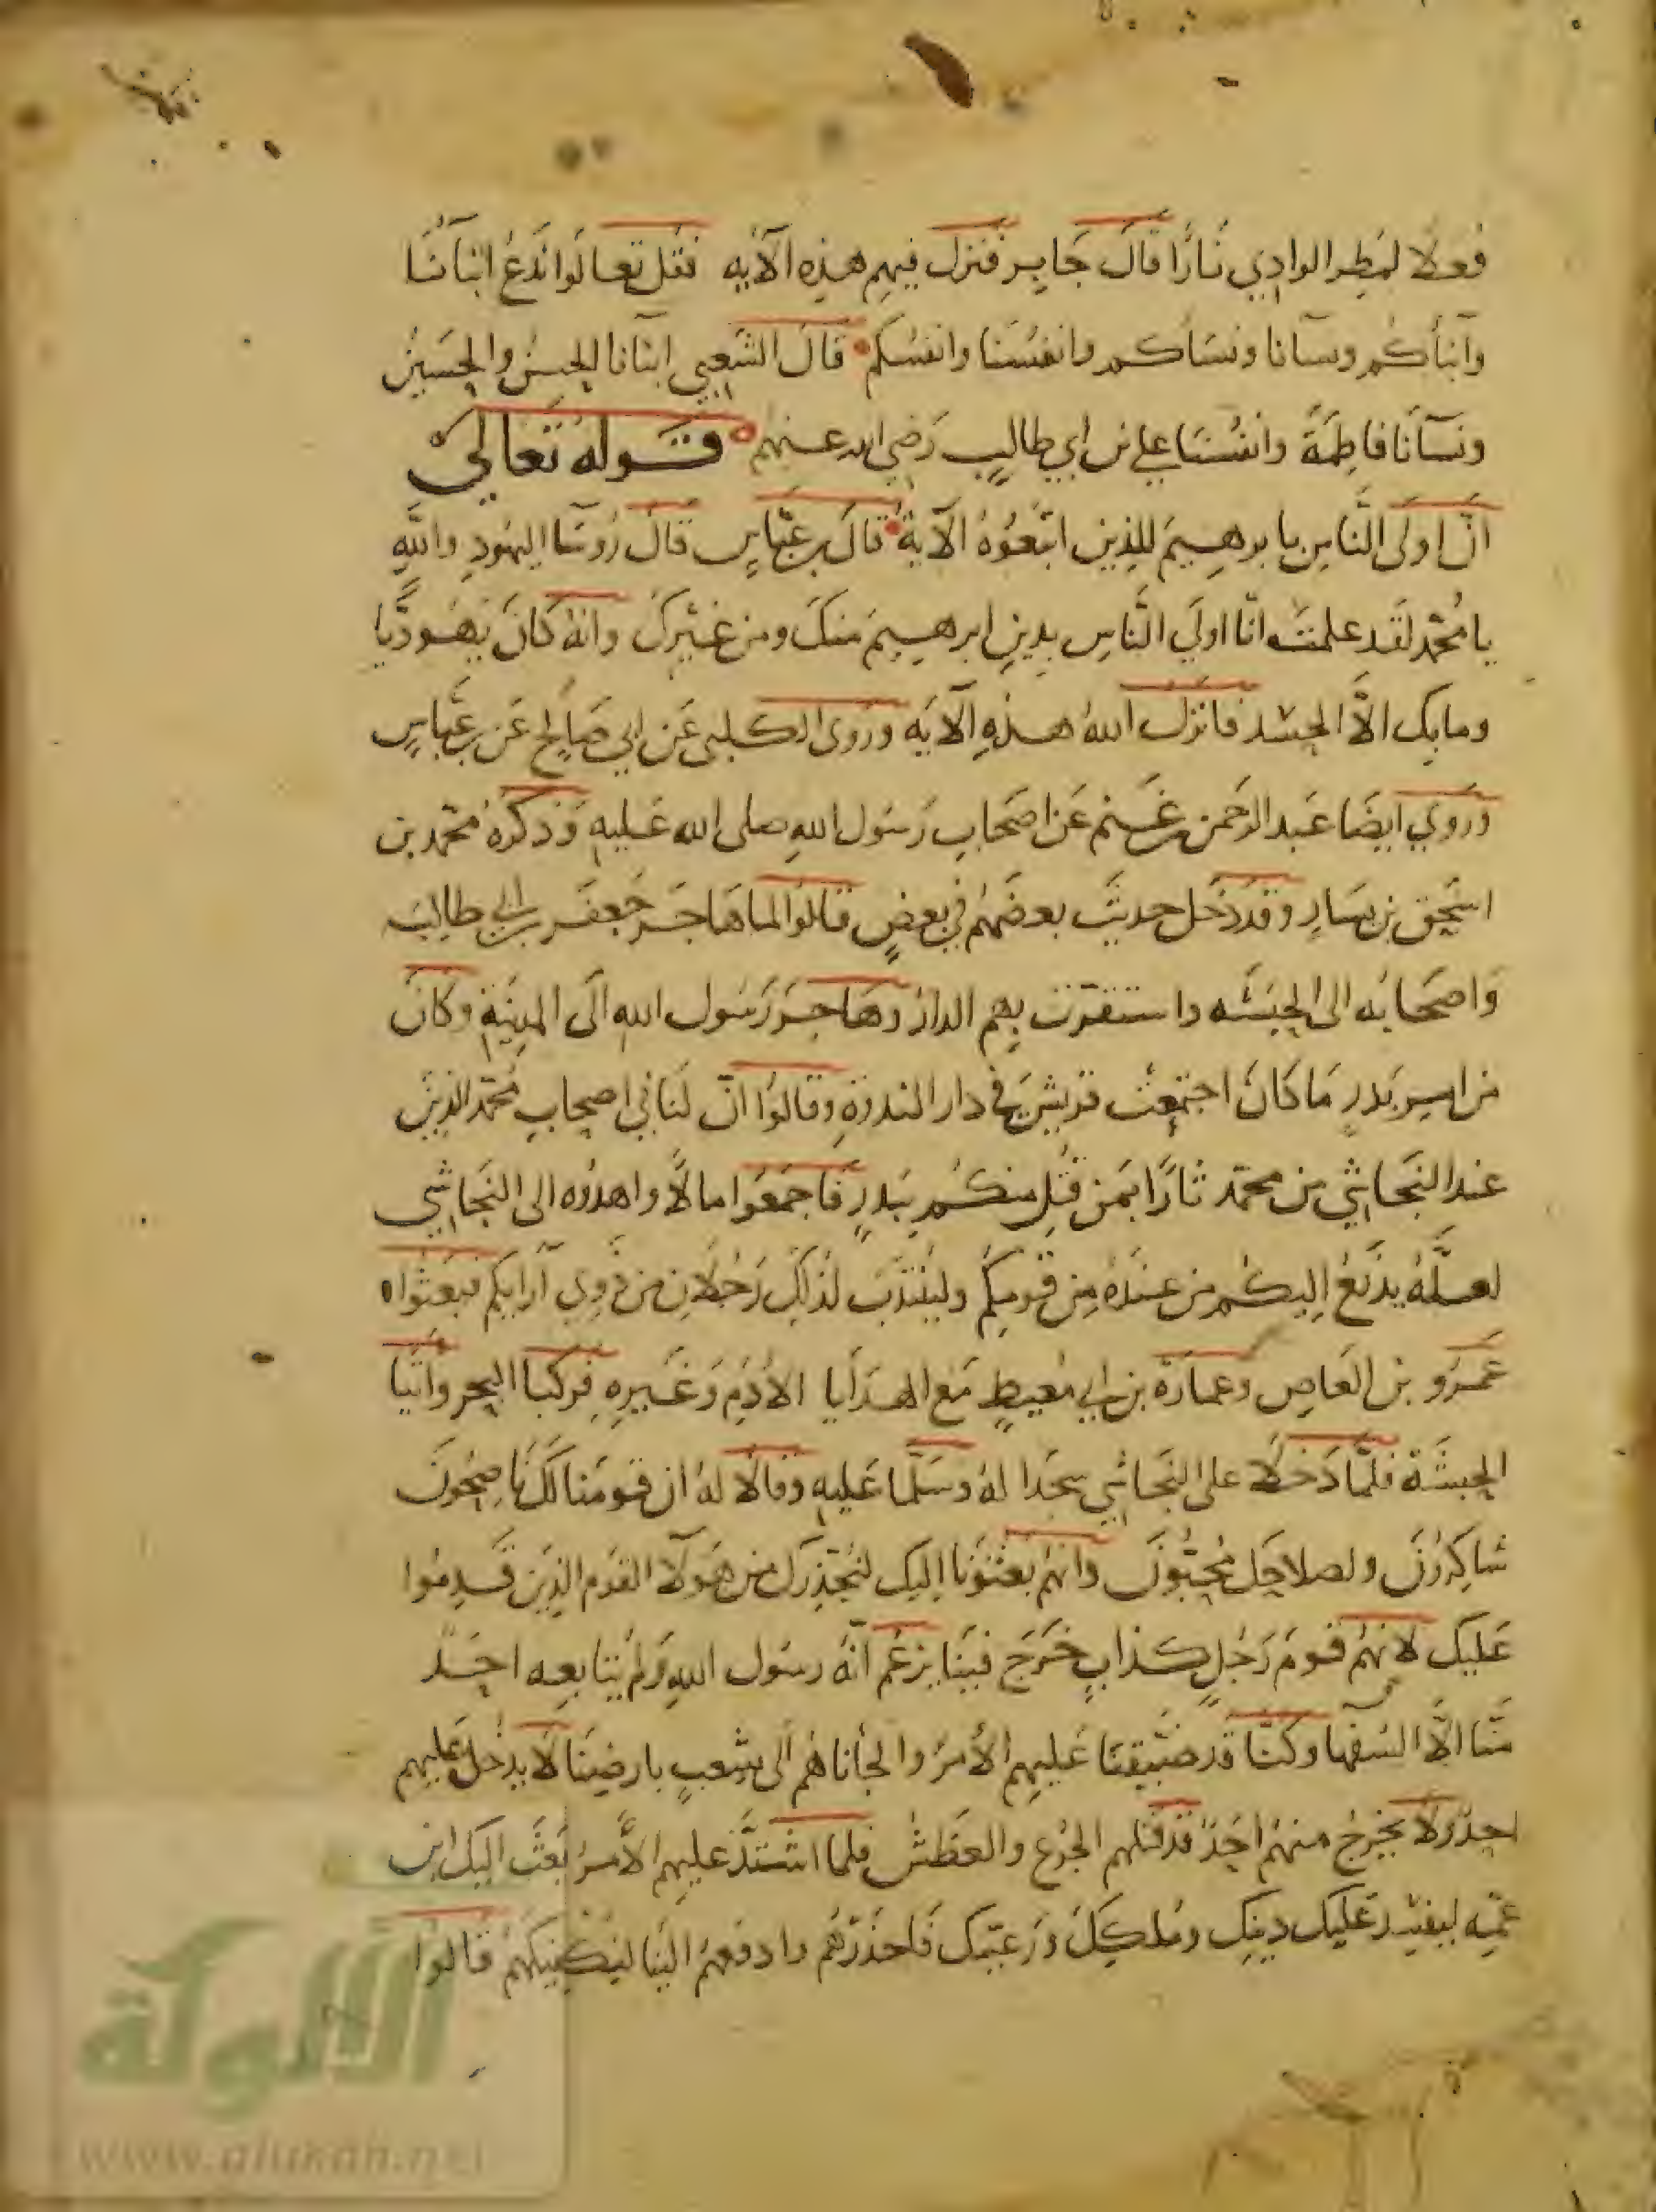 فعلا لمطر الوادي نارا قال جابر فنزل فيهم هذه الآيه فقل تعالوا ندع ابنآنا
وآبنأكم ونسآنا ونسأكم وانفسنا وانفسكم قال الشعبي ابنانا الحسن والحسين
ونسآنا فاطمة وانفسنا علي بن ابي طالب رضي الله عنهم قوله تعالي
انّ اولى النّاس بابرهيم للذين اتبعوه الآية قال بن عبّاس قال رُوسآ اليهود والله
يا محمّد لقد علمت انّا اولي النّاس بدين ابرهيم منك ومن غيرك وانه كان يهوديّا
وما بك الاّ الحسد فانزل الله هذه الآيه وروى الكلبي عن ابي صالح عن بن عبّاس
وروي ايضا عبد الرحمن بن غنم عن اصحاب رسول الله صلى الله عليه وذكره محمّد بن
اسحق بن يسار وقد دخل حديث بعضهم في بعض قالوا لما هاجر جعفر بن ابي طالب
واصحابه الى الحبشه واستقرّت بهم الدار وهاجر رسول الله الى المدينة وكان
من امر بدر ما كان اجتمعت قريش في دار الندوة وقالوا انّ لنا في اصحاب محمّد الذين
عند النجاشي من محمّد ثارًا بمن قُتل منكم ببدر فاجمعوا مالاً واهدوه الى النجاشي
لعلّه يدفع اليكم من عنده من قومكم ولينتدب لذلك رجلان من ذوي آرايكم فبعثوا
عمرو بن العاص وعمارة بن ابي معيط مع الهدايا الأدم وغيره فركبا البحر واتيا
الحبشة فلمّا دخلا على النجاشي سجدا له وسلّما عليه وقالا له ان قومنا لك ناصحون
شاكرون ولصلاحك محبّون وانهم بعثونا اليك لنحذرك من هولآ القوم الذين قدموا
عليك لانهم قوم رجل كذاب خرج فينا يزعم انّه رسول الله ولم يتابعه احد
منّا الاّ السفها وكنّا قد ضيّقنا عليهم الأمر والجأناهم الى شعب بارضنا لا يدخل عليهم
احد ولا يخرج منهم احد قد قتلهم الجوع والعطش فلما اشتدّ عليهم الأمر بعث اليك ابن
عمّه ليفسد عليك دينك وملكك ورعيّتك فاحذرهم وادفعهم الينا لنكفيكهم قالوا
الألوكة
www.alukah.net